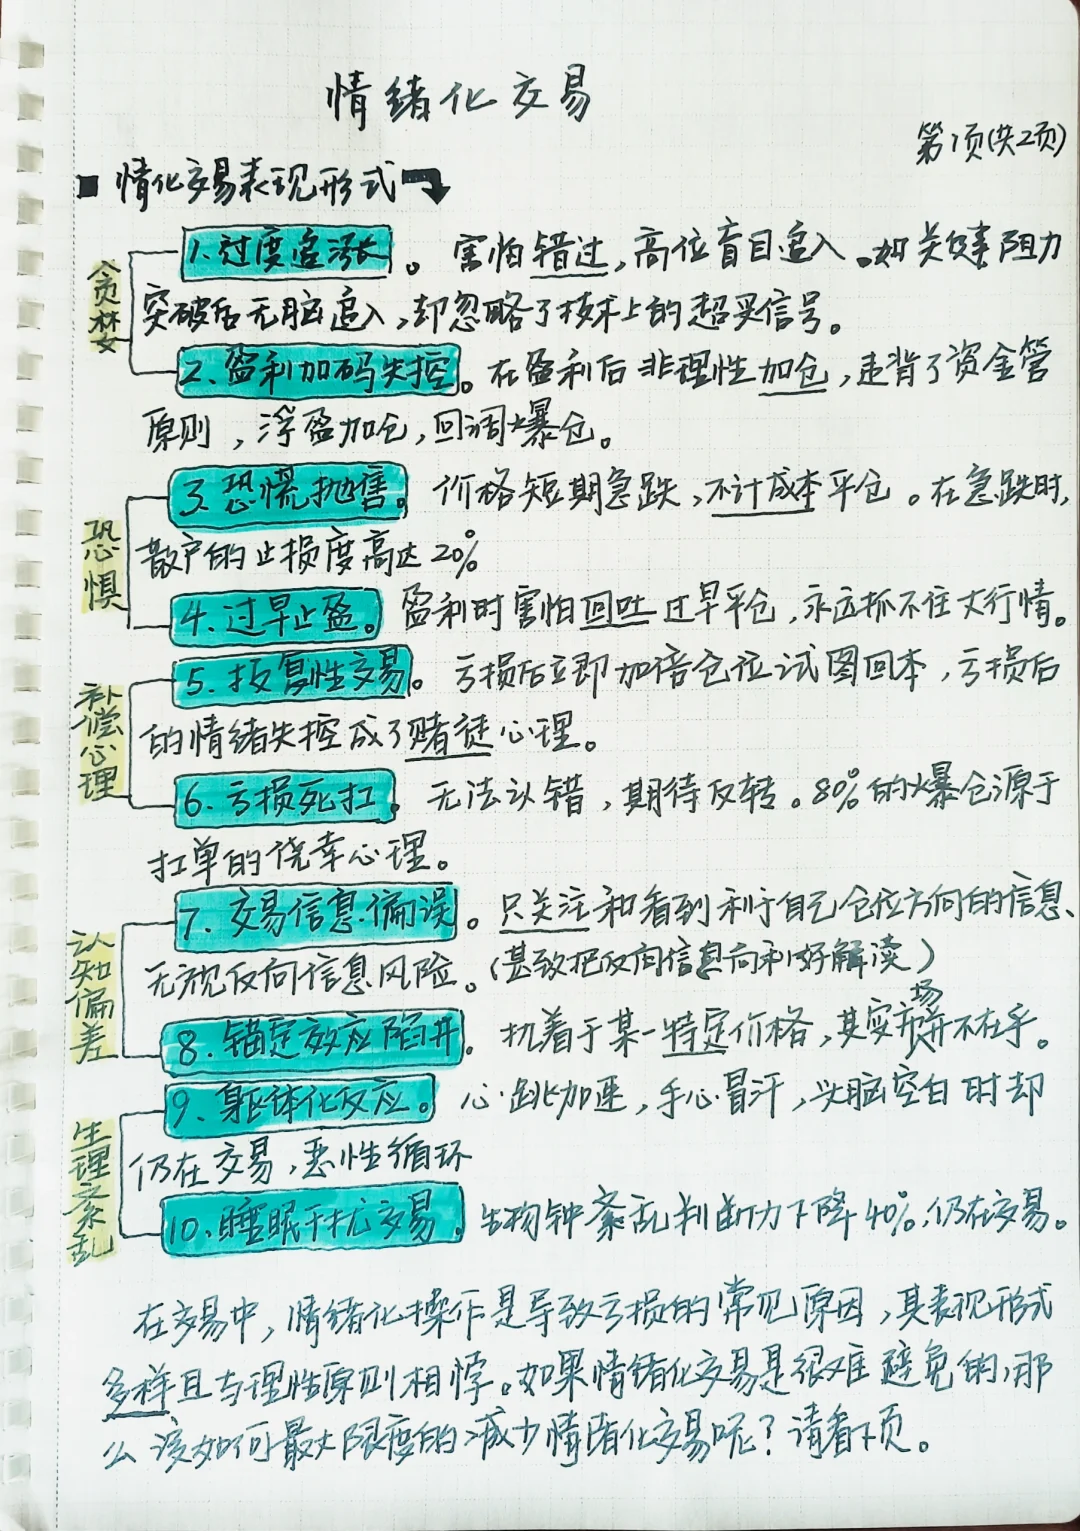 情绪化交易
第1页(共2页)
■ 情化交易表现形式
贪婪
1.过度追涨。害怕错过,高位盲目追入。如关键阻力
突破后无脑追入,却忽略了技术上的超买信号。
2.盈利加码失控。在盈利后非理性加仓,违背了资金管
原则,浮盈加仓,回调爆仓。
恐惧
3.恐慌抛售。价格短期急跌,不计成本平仓。在急跌时,
散户的止损度高达20%
4.过早止盈。盈利时害怕回吐过早平仓,永远抓不住大行情。
补偿心理
5.报复性交易。亏损后立即加倍仓位试图回本,亏损后
的情绪失控成了赌徒心理。
6.亏损死扛。无法认错,期待反转。80%的爆仓源于
扛单的侥幸心理。
认知偏差
7.交易信息偏误。只关注和看到利于自己仓位方向的信息、
无视反向信息风险。(甚致把反向信息向利好解读)
8.锚定效应陷井。执着于某一特定价格,其实市场并不在乎。
生理紊乱
9.躯体化反应。心跳加速,手心冒汗,头脑空白时却
仍在交易,恶性循环
10.睡眠干扰交易。生物钟紊乱判断力下降40%,仍在交易。
在交易中,情绪化操作是导致亏损的常见原因,其表现形式
多样且与理性原则相悖。如果情绪化交易是很难避免的,那
么该如何最大限度的减少情绪化交易呢?请看下页。